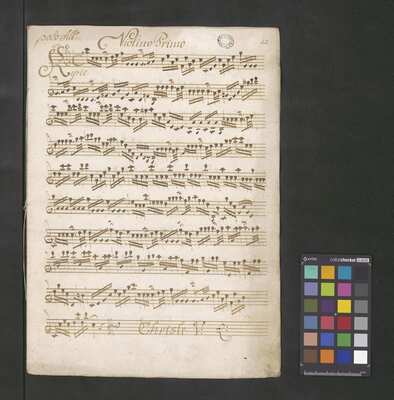 Violino Primo
Kyrie
Christe V.
colorchecker